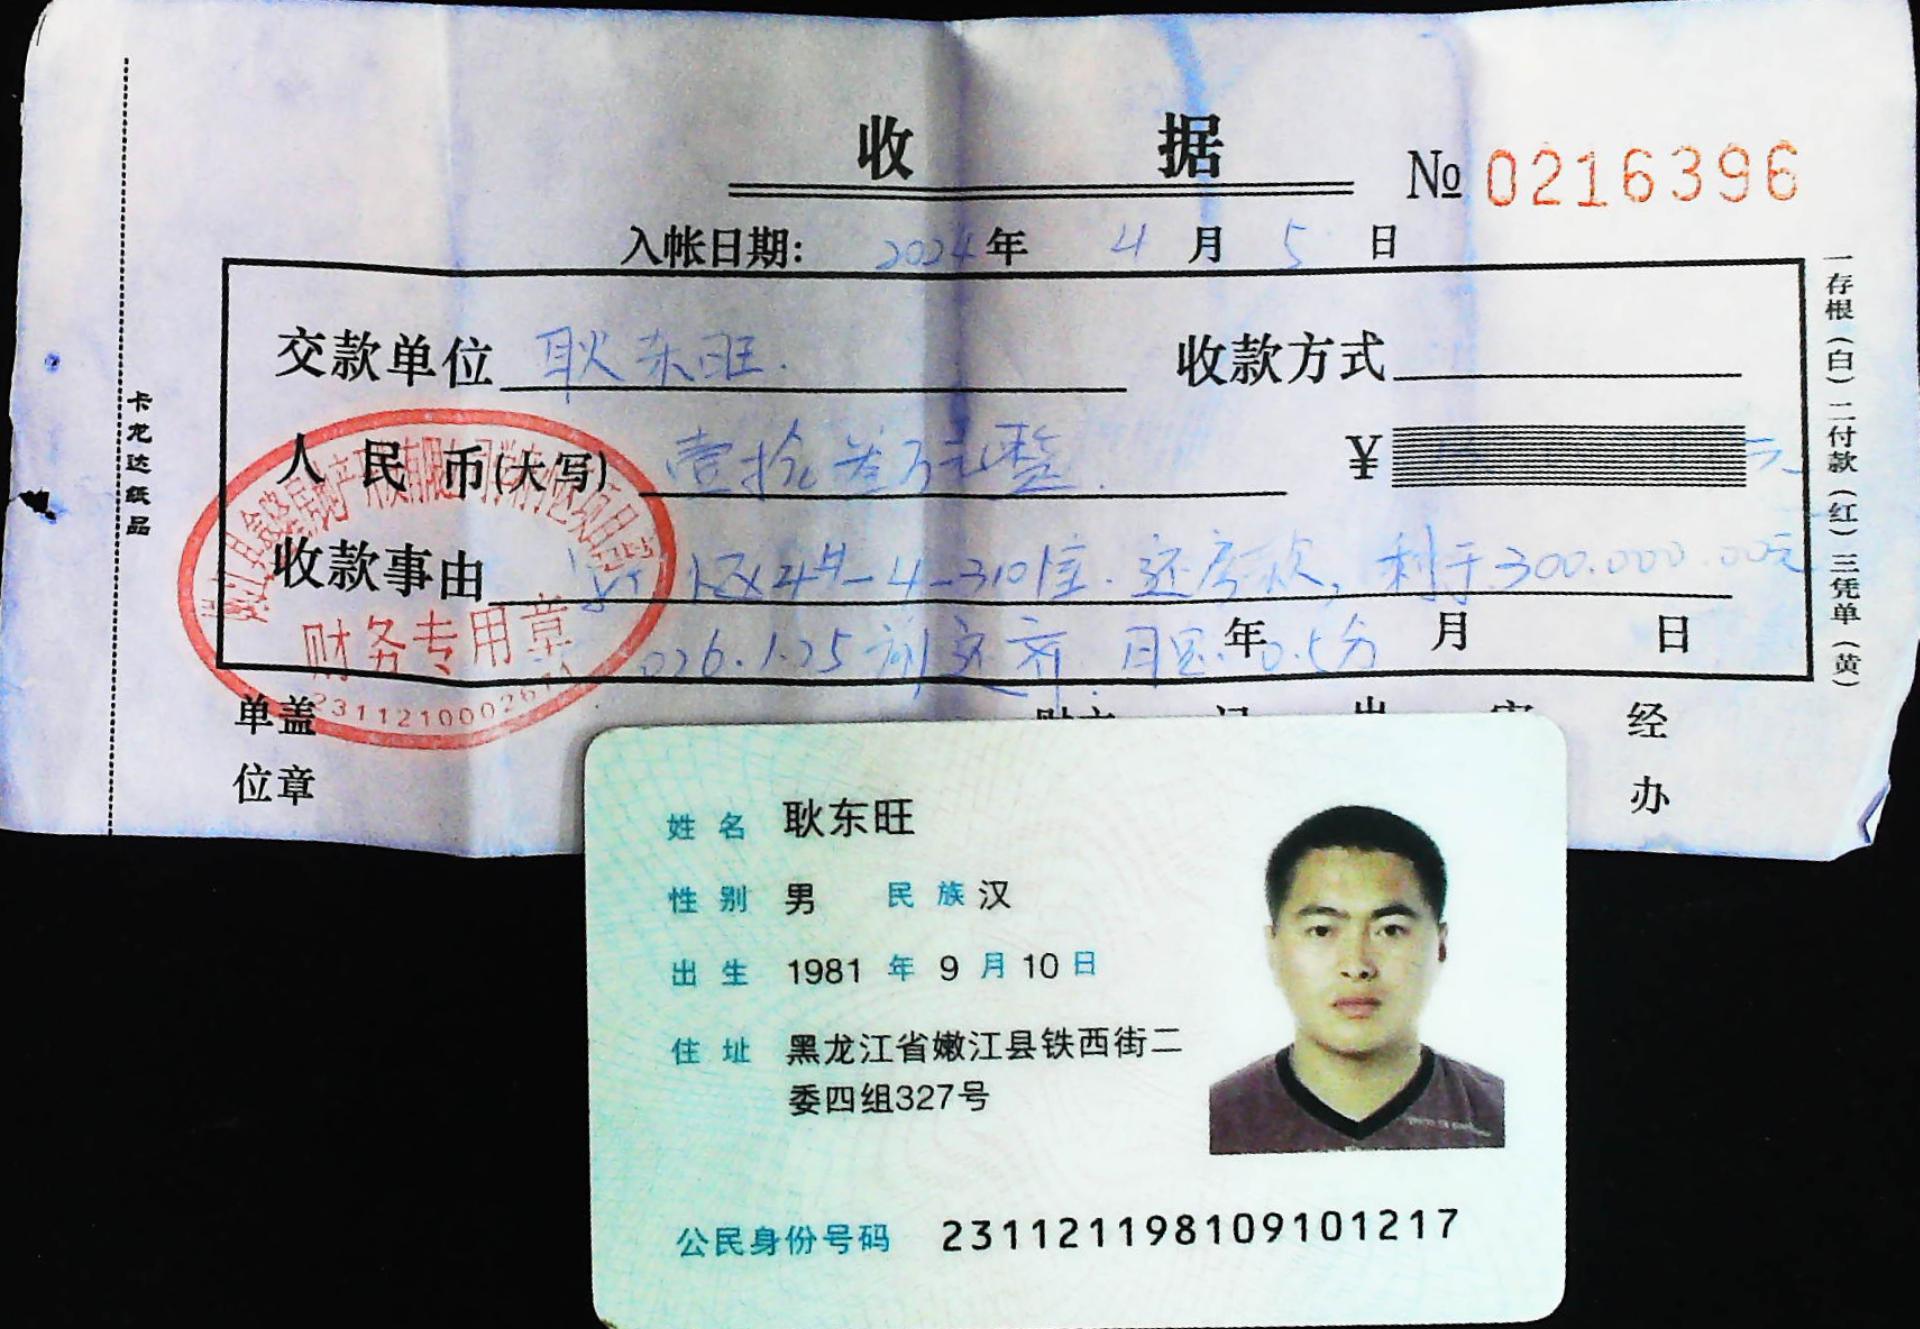 收 据
№ 0216396
入帐日期: 2024 年 4 月 5 日
交款单位 耿东旺. 收款方式
人 民 币(大写) 壹拾叁万元整. ¥ 元
收款事由 区24#-4-310住. 还房款, 剩于300.000.00元
026.1.25前还齐. 月息. 0.5分
年 月 日
财务专用章
2311210002671
单盖
位章
经
办
卡龙达纸品
一存根(白)二付款(红)三凭单(黄)
姓名 耿东旺
性别 男 民族 汉
出生 1981 年 9 月 10 日
住址 黑龙江省嫩江县铁西街二
委四组327号
公民身份号码 231121198109101217